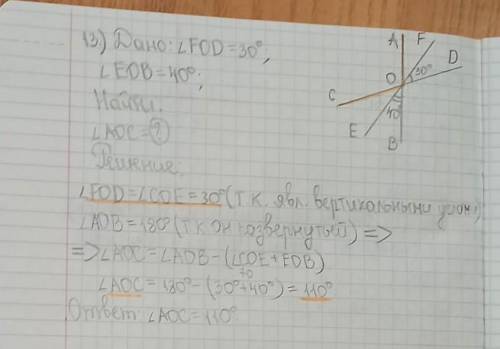 13) Дано: ∠FOD = 30°;
∠EOB = 40°;
Найти:
∠AOC = ?
Решение:
∠FOD = ∠COE = 30° (т.к. явл. вертикальными углами)
∠AOB = 180° (т.к он развернутый) =>
=> ∠AOC = ∠AOB - (∠COE + EOB)
70
∠AOC = 180° - (30° + 40°) = 110°
Ответ ∠AOC = 110°
A F
D
O 30°
C
40°
E
B